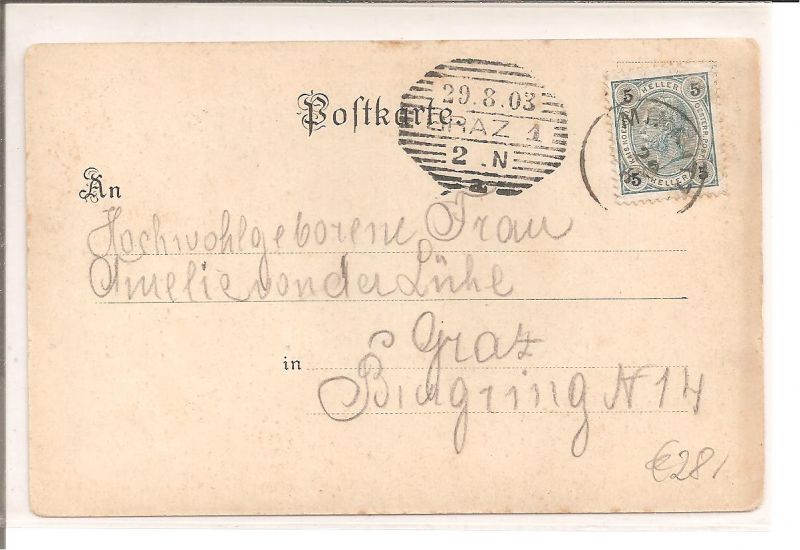 Postkarte.
29.8.03
GRAZ 1
2.N
a
5 HELLER 5
5 HELLER 5
An
Hochwohlgeborene Frau
Amelie von der Lühe
Graz
in
Burgring N 14
€28/